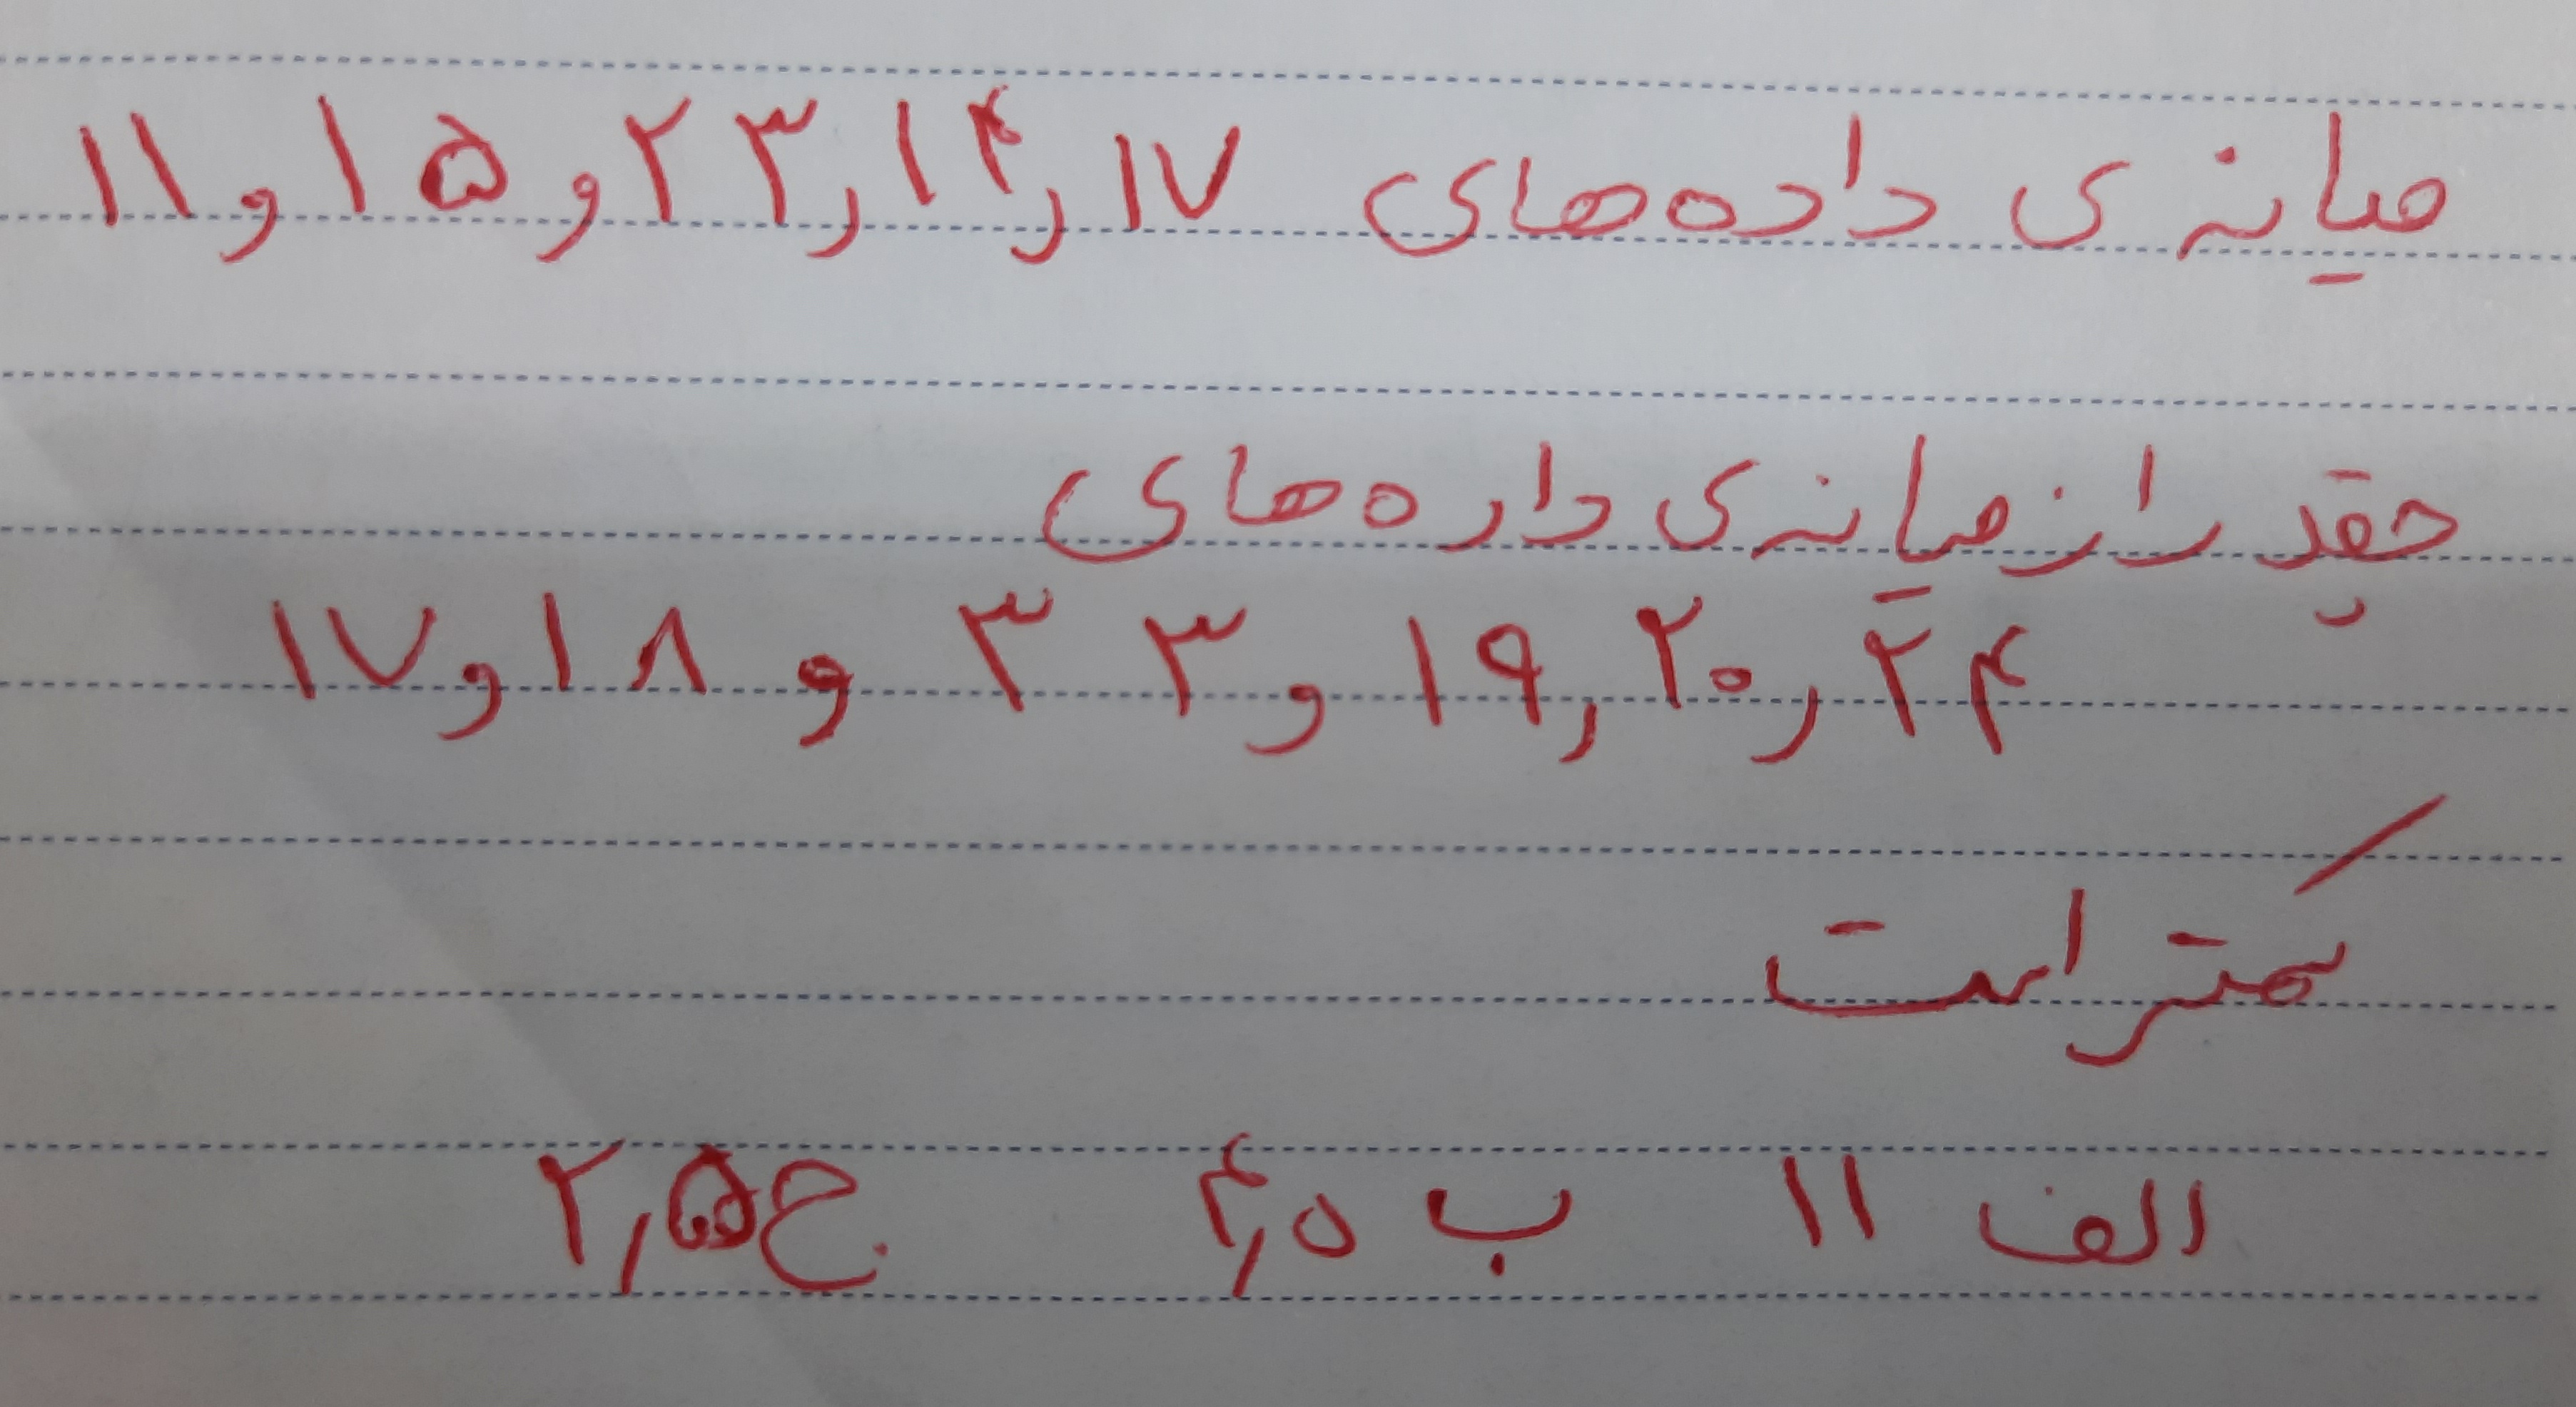 میانه‌ی داده‌های ۱۷ ر ۱۴ ر ۲۳ و ۱۵ و ۱۱
چقدر از میانه‌ی داده‌های
۲۴ ر ۲۰ ر ۱۹ و ۳۳ و ۱۸ و ۱۷
کمتر است
الف ۱۱ ب ۴٫۵ ج ۲٫۵